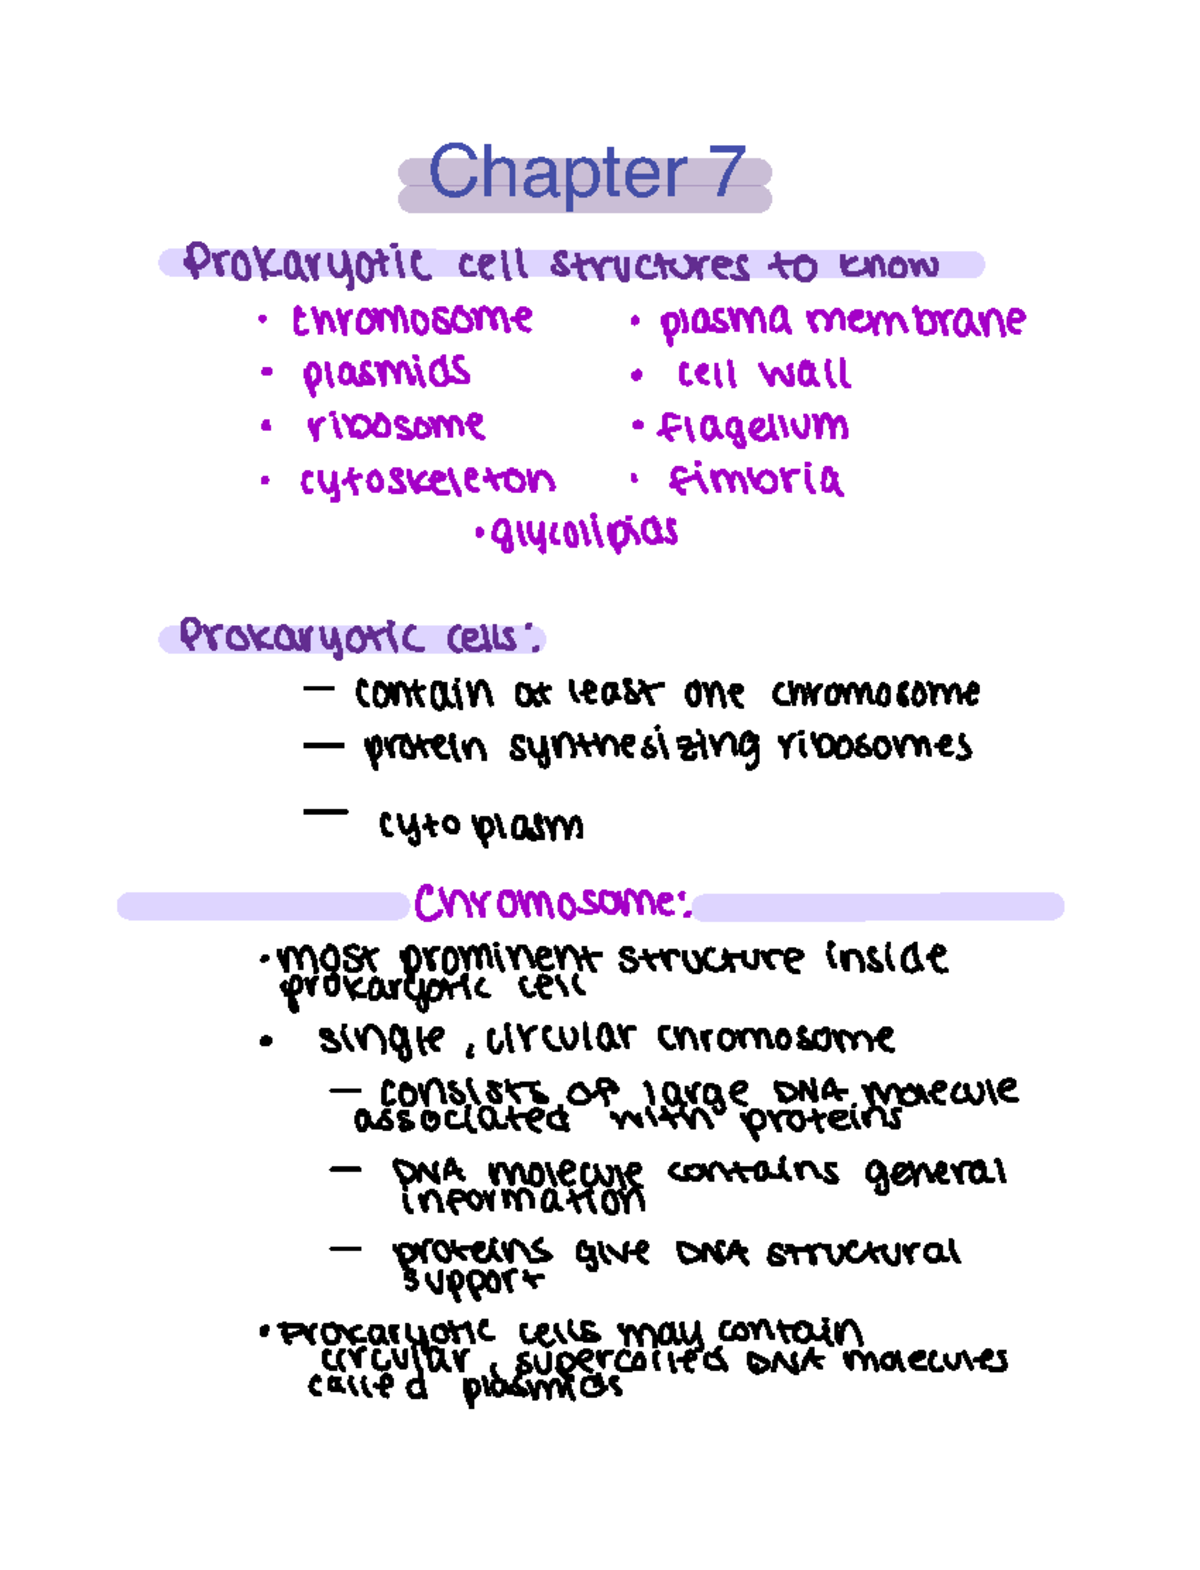 Chapter 7
Prokaryotic cell structures to know
• chromosome • plasma membrane
• plasmids • cell wall
• ribosome • flagellum
• cytoskeleton • fimbria
• glycolipids
Prokaryotic cells:
— contain at least one chromosome
— protein synthesizing ribosomes
— cytoplasm
Chromosome:
• most prominent structure inside
prokaryotic cell
• single, circular chromosome
— consists of large DNA molecule
associated with proteins
— DNA molecule contains general
information
— proteins give DNA structural
support
• Prokaryotic cells may contain
circular, supercoiled DNA molecules
called plasmids